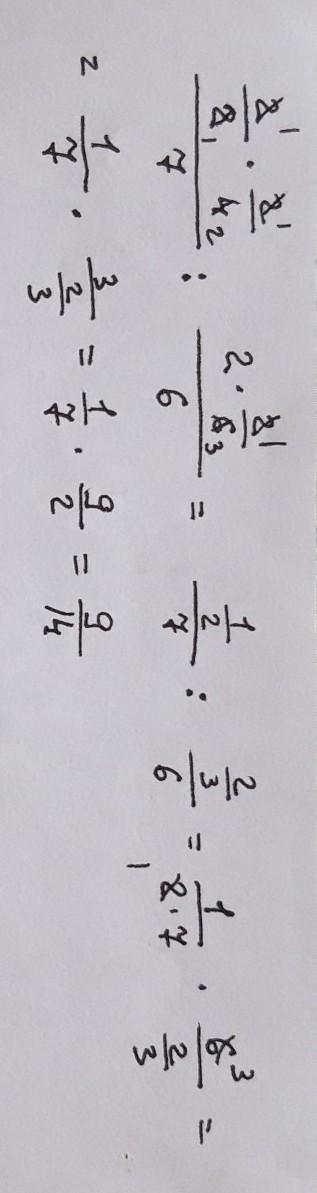 \frac{\frac{\cancel{2}^1}{\cancel{2}_1} \cdot \frac{\cancel{2}^1}{\cancel{4}_2}}{7} : \frac{2 \cdot \frac{\cancel{2}^1}{\cancel{6}_3}}{6} = \frac{\frac{1}{2}}{7} : \frac{\frac{2}{3}}{6} = \frac{1}{\cancel{2}_1 \cdot 7} \cdot \frac{\cancel{6}^3}{\frac{2}{3}} =
= \frac{1}{7} \cdot \frac{3}{\frac{2}{3}} = \frac{1}{7} \cdot \frac{9}{2} = \frac{9}{14}